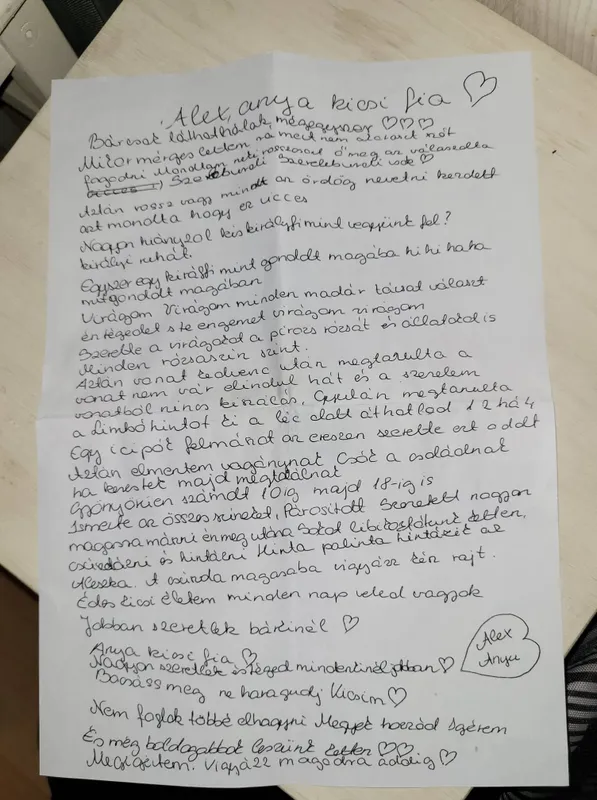 Alex, anya kicsi fia ♡
Bárcsak láthatnálak mégegyszer ♡♡♡
Mikor mérges lettem rá mert nem akarast szót
fogadni Mondtam neki rosszcsont ő meg az válaszolta
Szerelebureli Szerelebureli vok ♡
Aztán rossz vagy mindt az ördög nevetni kezdett
azt mondta hogy ez ucccs
Nagyon hiányzol kis királyfi mint vegyünk fel?
királyi ruhát.
Egyszer egy királfi mint gondolt magába hihi haha
mit gondolt magában
Virágom Virágom minden madár társat választ
én tégedet s te engemet virágom virágom
Szerette a virágokat a piros rózsát és állatokat is
Minden rózsaszín színt.
Aztán vonat kedvenc után megtanulta a
vonat nem vár elindul hát és a szerelem
vonatból nincs kiszállás, megtanulta
a Limbó hintót ki a léc alatt áthalad 1 2 há 4
Egy icipót felmászat az ereszen szerette ezt a dalt
Aztán elmentem vagánynak Csók a családnak
ha kerestek majd megtaláltnak
Gyönyörűen számolt 10ig majd 18-ig is
Ismerte az összes színeket, Párosított Szeretett nagyon
magasra mászni én meg utána Sokat libikókáztunk ketten,
csúszdázni és hintázni Hinta palinta hintázik az
Alexka. A csúszda magasába vigyázz kész rajt.
Édes kicsi életem minden nap veled vagyok
Jobban szeretlek bárkinél ♡
Anya kicsi fia ♡
Nagyon szeretlek és téged mindenkinél jobban ♡
Alex
Anyu
Bocsáss meg ne haragudj Kicsim ♡
Nem foglak többé elhagyni Megyek hozzád Ígérem
És még boldogabbak leszünk ketten ♡♡
Megígértem. vigyázz magadra addig ♡